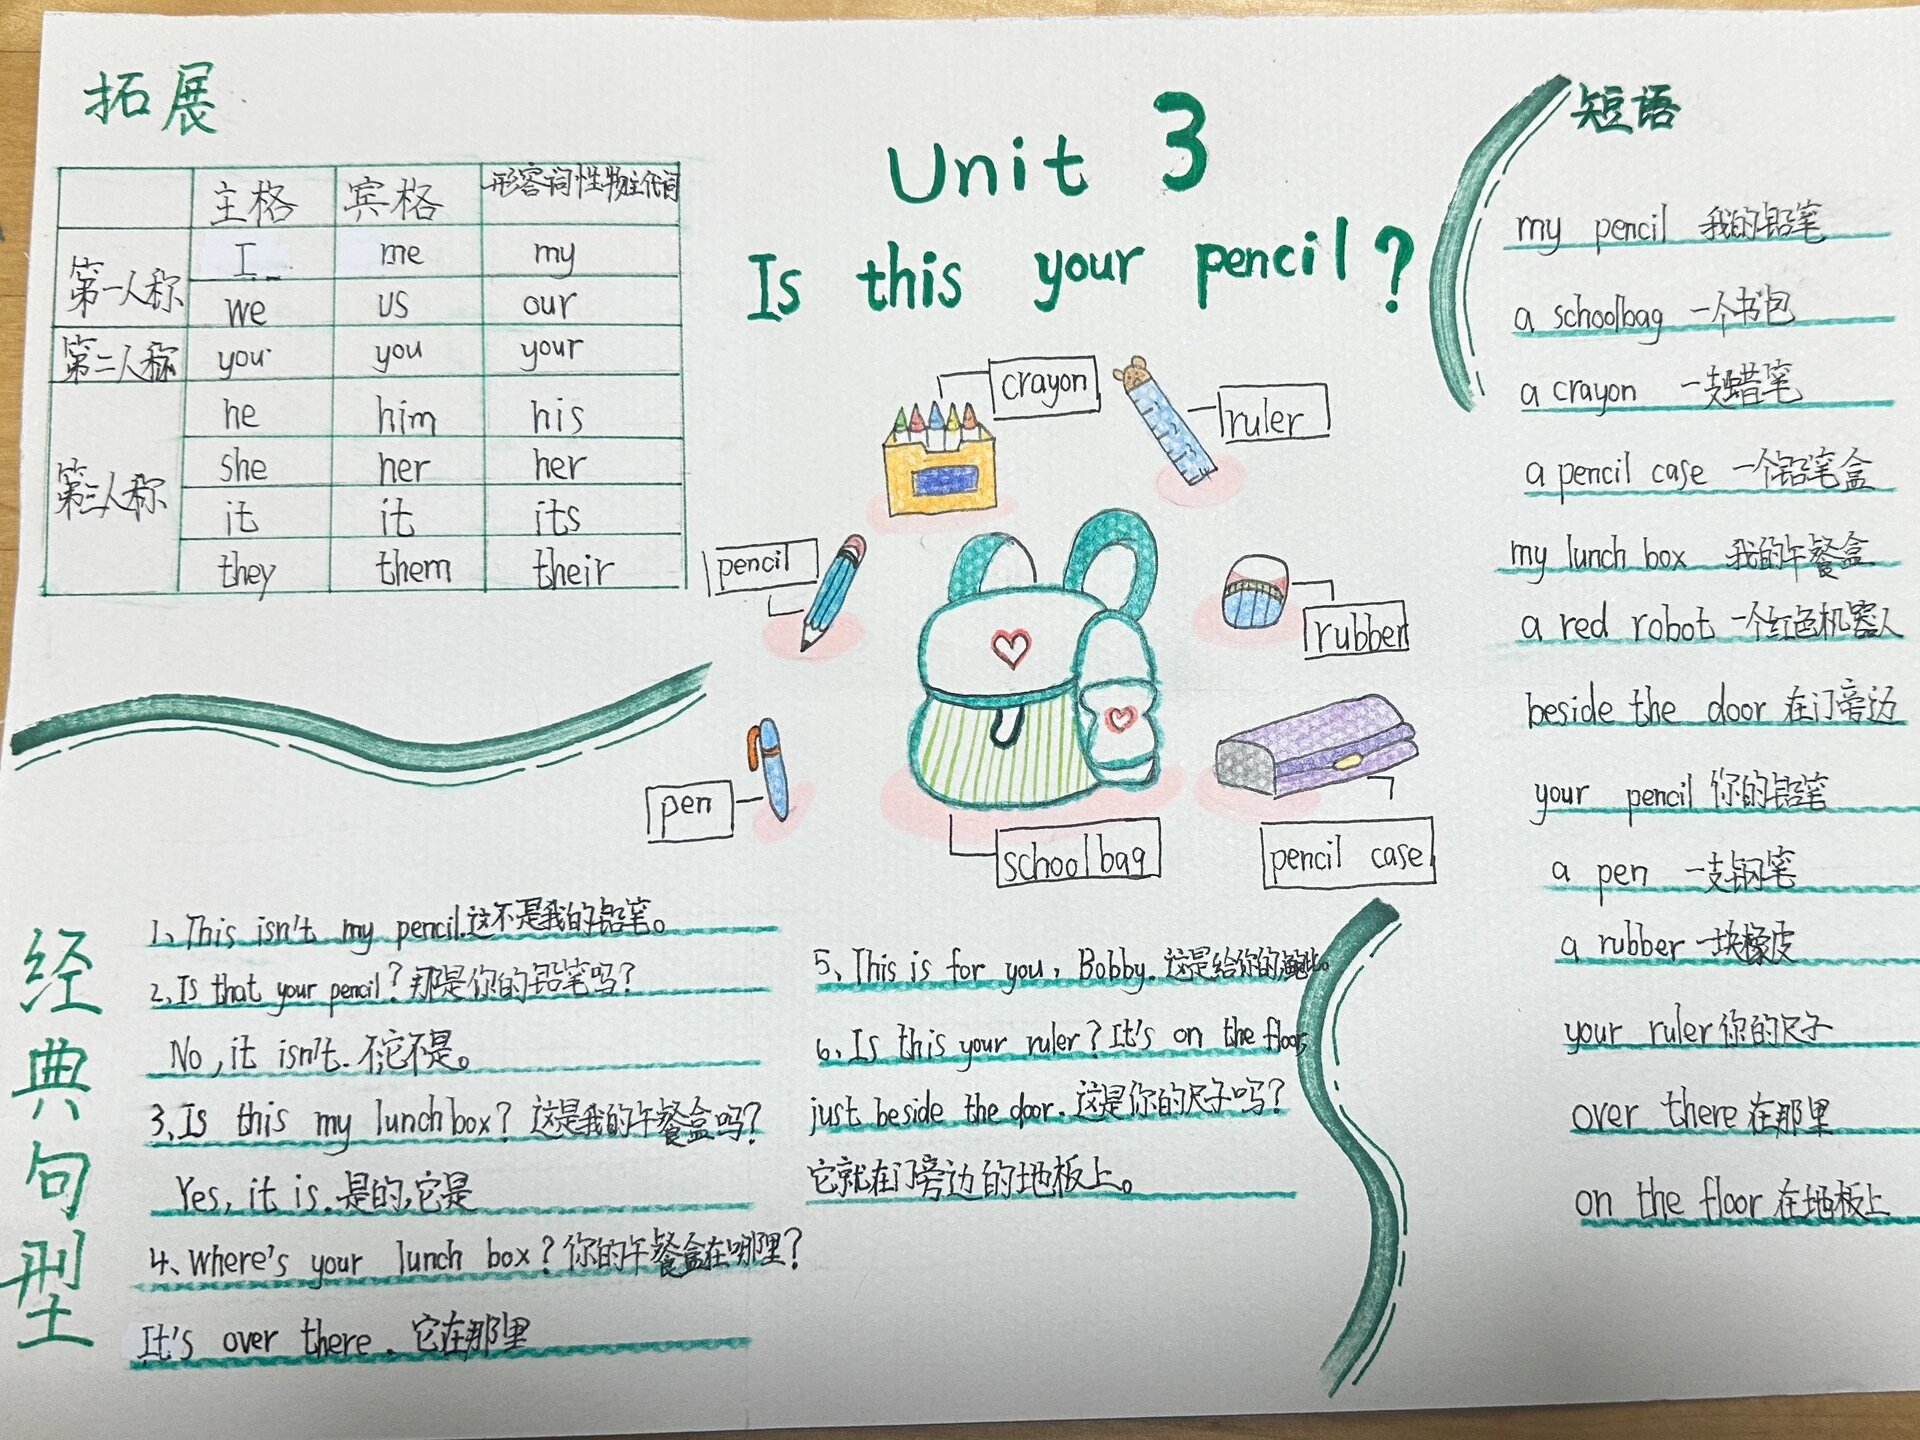 拓展
主格 宾格 形容词性物主代词
第一人称 I me my
we us our
第二人称 you you your
第三人称 he him his
she her her
it it its
they them their
Unit 3
Is this your pencil?
crayon
ruler
pencil
rubber
pen
schoolbag
pencil case
短语
my pencil 我的铅笔
a schoolbag 一个书包
a crayon 一支蜡笔
a pencil case 一个铅笔盒
my lunch box 我的午餐盒
a red robot 一个红色机器人
beside the door 在门旁边
your pencil 你的铅笔
a pen 一支钢笔
a rubber 一块橡皮
your ruler 你的尺子
over there 在那里
on the floor 在地板上
经典句型
1、This isn't my pencil.这不是我的铅笔。
2、Is that your pencil?那是你的铅笔吗?
No,it isn't.不,它不是。
3、Is this my lunchbox? 这是我的午餐盒吗?
Yes, it is.是的,它是
4、Where's your lunch box?你的午餐盒在哪里?
It's over there. 它在那里
5、This is for you, Bobby. 这是给你的
6、Is this your ruler? It's on the floor,
just beside the door.这是你的尺子吗?
它就在门旁边的地板上。